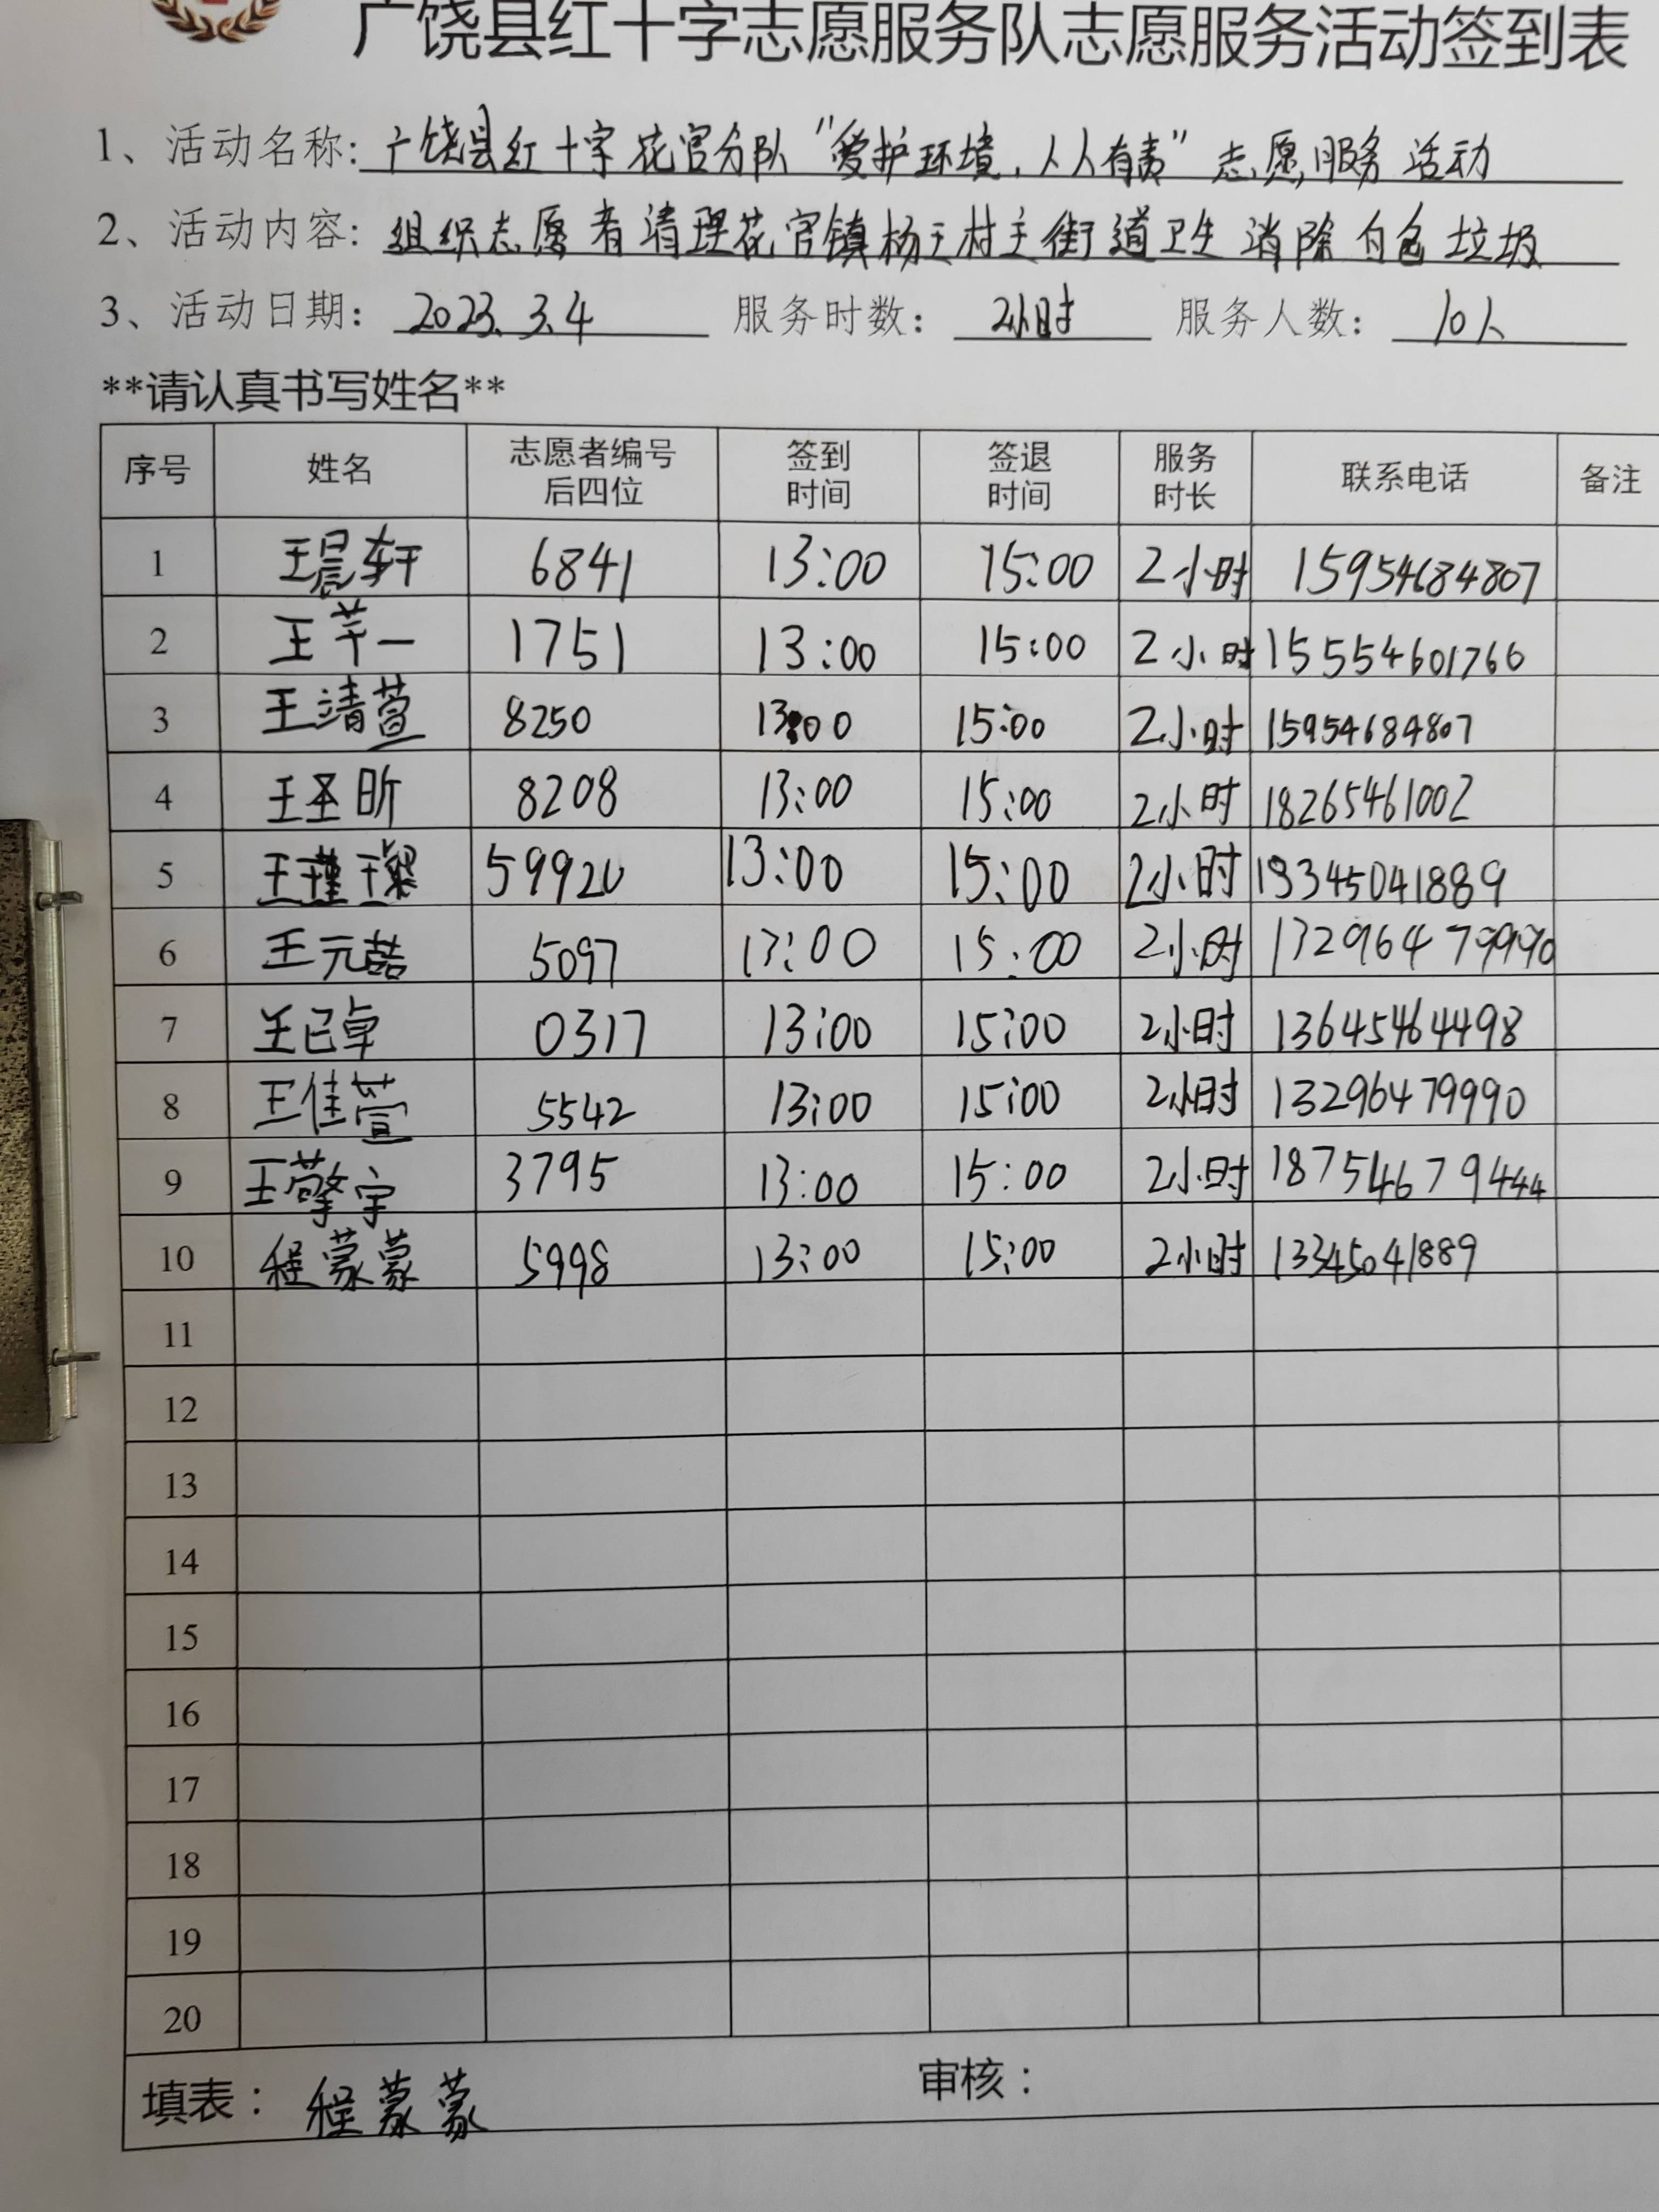 广饶县红十字志愿服务队志愿服务活动签到表
1、活动名称: 广饶县红十字花官分队“爱护环境，人人有责”志愿服务活动
2、活动内容: 组织志愿者清理花官镇杨王村主街道卫生消除白色垃圾
3、活动日期: 2023.3.4 服务时数: 2小时 服务人数: 10人
**请认真书写姓名**
序号 姓名 志愿者编号后四位 签到时间 签退时间 服务时长 联系电话 备注
1 王晨轩 6841 13:00 15:00 2小时 15954684807
2 王芊一 1751 13:00 15:00 2小时 15554601766
3 王靖萱 8250 13:00 15:00 2小时 15954684807
4 王圣昕 8208 13:00 15:00 2小时 18265461002
5 王瑾璨 59920 13:00 15:00 2小时 13345041889
6 王元喆 5097 13:00 15:00 2小时 13296479990
7 王已卓 0317 13:00 15:00 2小时 13645464498
8 王佳萱 5542 13:00 15:00 2小时 13296479990
9 王擎宇 3795 13:00 15:00 2小时 18754679444
10 程蒙蒙 5998 13:00 15:00 2小时 13345041889
11
12
13
14
15
16
17
18
19
20
填表： 程蒙蒙 审核：